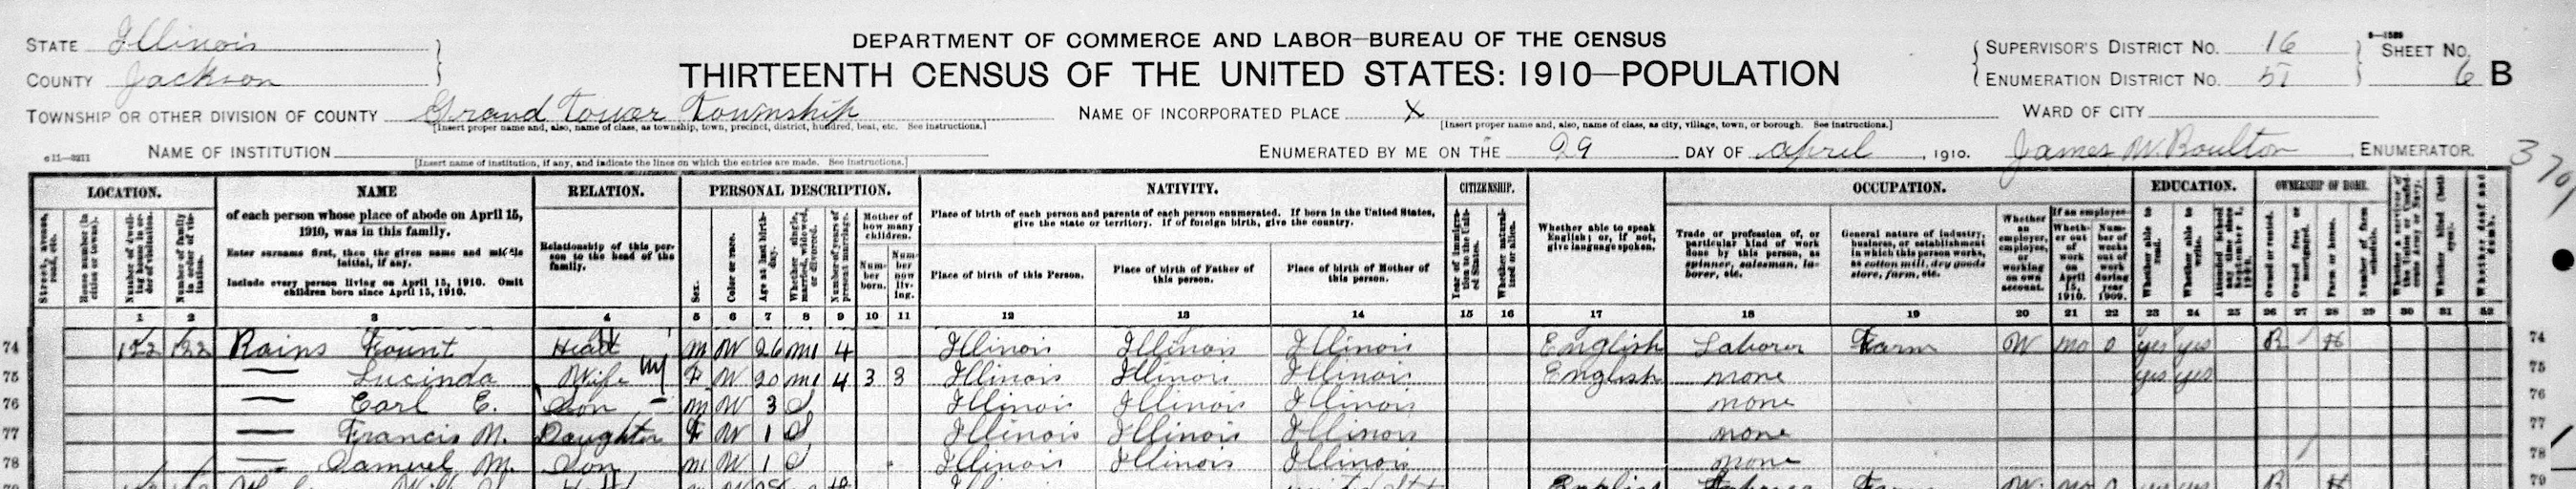 STATE Illinois
COUNTY Jackson
DEPARTMENT OF COMMERCE AND LABOR—BUREAU OF THE CENSUS
THIRTEENTH CENSUS OF THE UNITED STATES: 1910—POPULATION
SUPERVISOR'S DISTRICT NO. 16
ENUMERATION DISTRICT NO. 51
SHEET NO. 6 B
TOWNSHIP OR OTHER DIVISION OF COUNTY Grand Tower Township
[Insert proper name and, also, name of class, as township, town, precinct, district, hundred, beat, etc. See instructions.]
NAME OF INCORPORATED PLACE X
[Insert proper name and, also, name of class, as city, village, town, or borough. See instructions.]
WARD OF CITY
NAME OF INSTITUTION
[Insert name of institution, if any, and indicate the lines on which the entries are made. See instructions.]
ENUMERATED BY ME ON THE 29 DAY OF April, 1910. James W. Boulton, ENUMERATOR.
LOCATION. NAME RELATION. PERSONAL DESCRIPTION. NATIVITY. CITIZENSHIP. OCCUPATION. EDUCATION. OWNERSHIP OF HOME.
Street, avenue, road, etc.
House number (in cities or towns).
Number of dwelling house in order of visitation.
Number of family in order of visitation.
of each person whose place of abode on April 15, 1910, was in this family.
Enter surname first, then the given name and middle initial, if any.
Include every person living on April 15, 1910. Omit children born since April 15, 1910.
Relationship of this person to the head of the family.
Sex.
Color or race.
Age at last birthday.
Whether single, married, widowed, or divorced.
Number of years of present marriage.
Mother of how many children.
Number born.
Number now living.
Place of birth of each person and parents of each person enumerated. If born in the United States, give the state or territory. If of foreign birth, give the country.
Place of birth of this Person.
Place of birth of Father of this person.
Place of birth of Mother of this person.
Year of immigration to the United States.
Whether naturalized or alien.
Whether able to speak English; or, if not, give language spoken.
Trade or profession of, or particular kind of work done by this person, as spinner, salesman, laborer, etc.
General nature of industry, business, or establishment in which this person works, as cotton mill, dry goods store, farm, etc.
Whether an employer, employee, or working on own account.
If an employee—
Whether out of work on April 15, 1910.
Number of weeks out of work during year 1909.
Whether able to read.
Whether able to write.
Attended school any time since September 1, 1909.
Owned or rented.
Owned free or mortgaged.
Farm or house.
Number of farm schedule.
Whether a survivor of the Union or Confederate Army or Navy.
Whether blind (both eyes).
Whether deaf and dumb.
1 2 3 4 5 6 7 8 9 10 11 12 13 14 15 16 17 18 19 20 21 22 23 24 25 26 27 28 29 30 31 32
74 122 122 Rains Fount Head M W 26 M1 4 Illinois Illinois Illinois English Laborer Farm W no 0 yes yes R H 74
75 — Lucinda Wife F W 20 M1 4 3 3 Illinois Illinois Illinois English none yes yes 75
76 — Earl E. Son M W 3 S Illinois Illinois Illinois none 76
77 — Francis M. Daughter F W 1 S Illinois Illinois Illinois none 77
78 — Samuel M. Son M W 1 S Illinois Illinois Illinois none 78